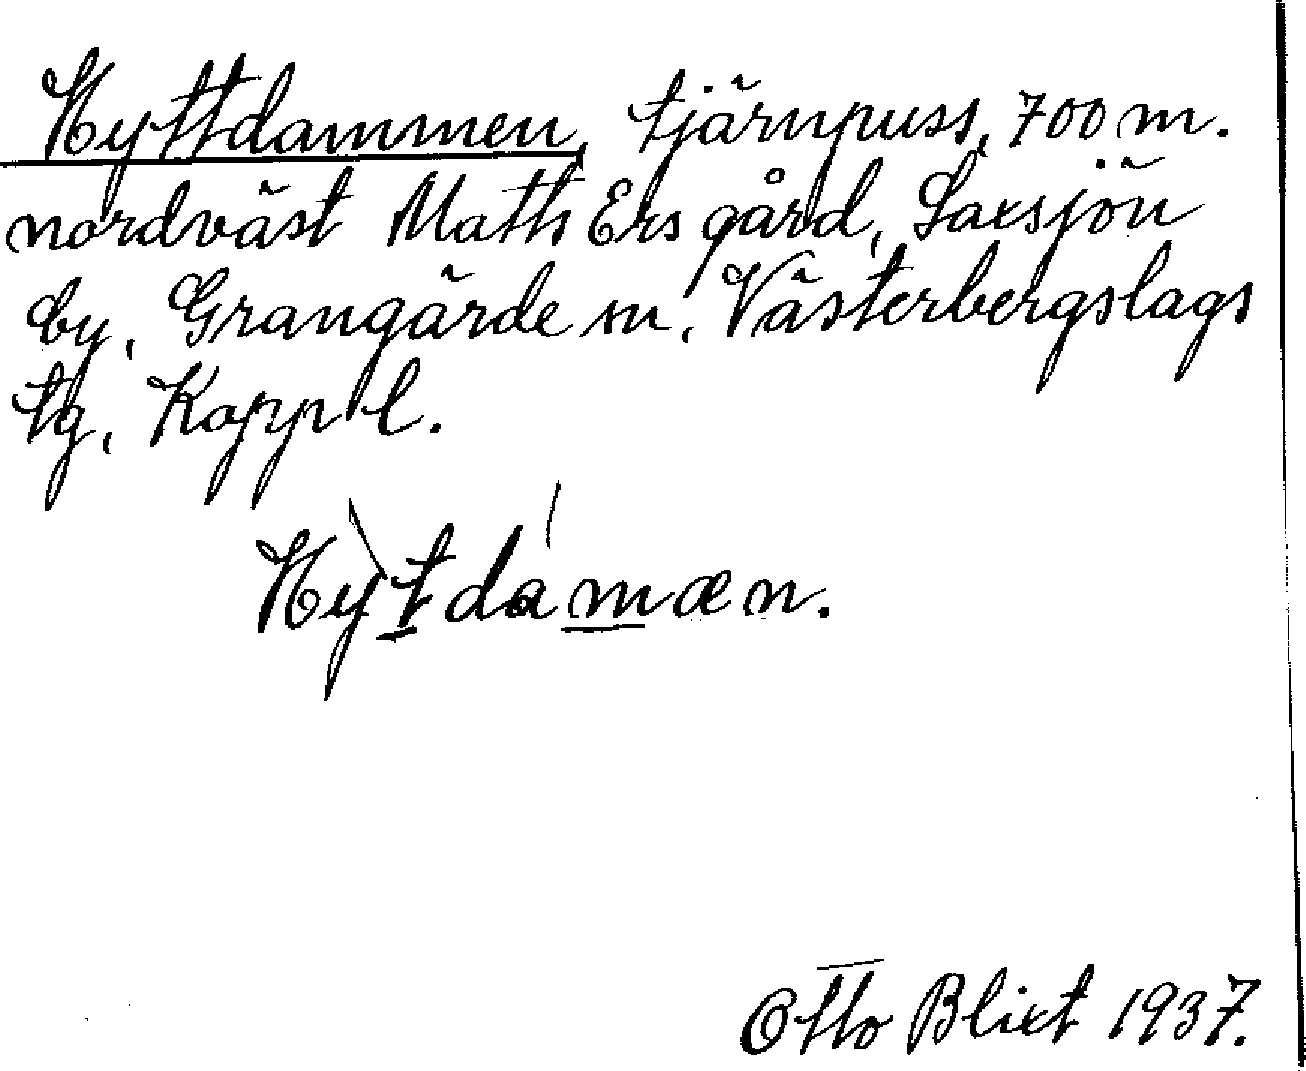 Hyttdammen, tjärnpuss, 700 m.
nordväst Mats Ers gård, Saxsjön
by, Grangärde sn, Västerbergslags
tg, Kopp l.
Hỳtdámæn.
Otto Blixt 1937.